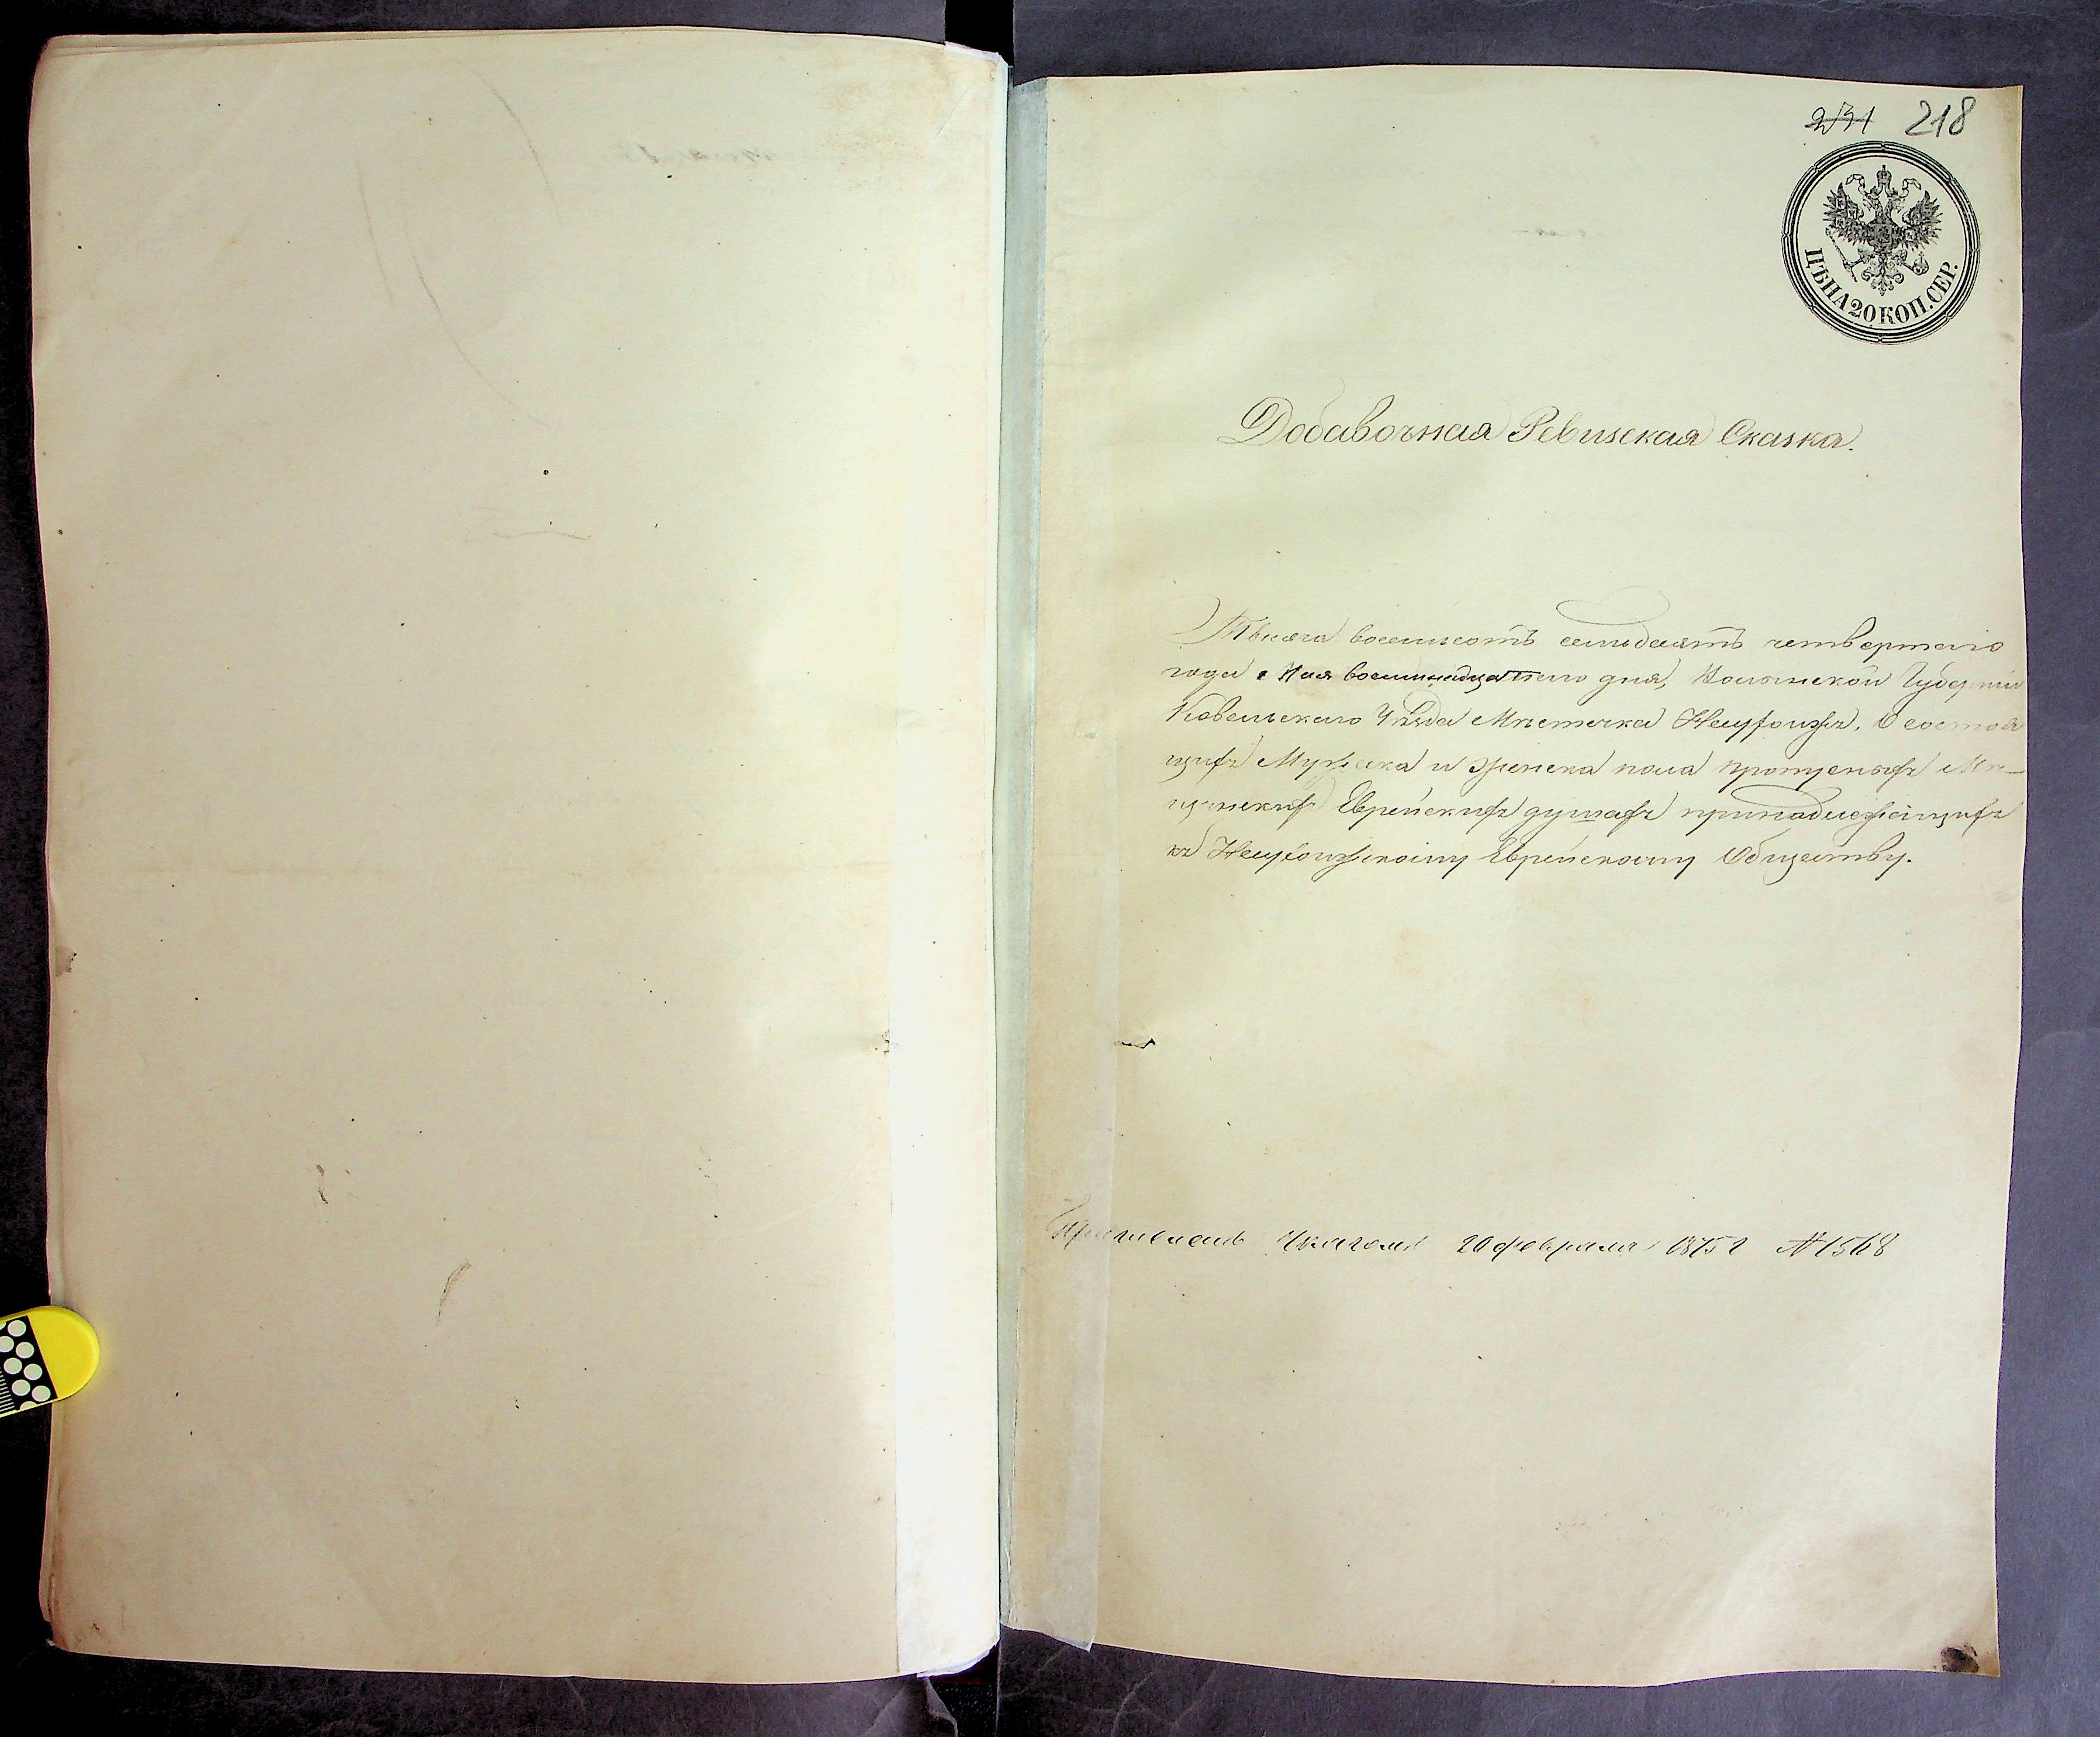 231 218
ЦѢНА 20 КОП. СЕР.
Добавочная Ревизская Сказка.
Тысяча восемьсотъ семьдесятъ четвертаго
года Мая восемнадцатаго дня, Волынской Губерніи
Ковельскаго Уѣзда Мѣстечка Несухоижъ, О состоя
щихъ Мужеска и Женска пола пропущеныхъ Мѣ-
щанскихъ Еврейскихъ душахъ принадлежащихъ
къ Несухоижскому Еврейскому Обществу.
Указомъ 20 февраля 1875 г № 1568